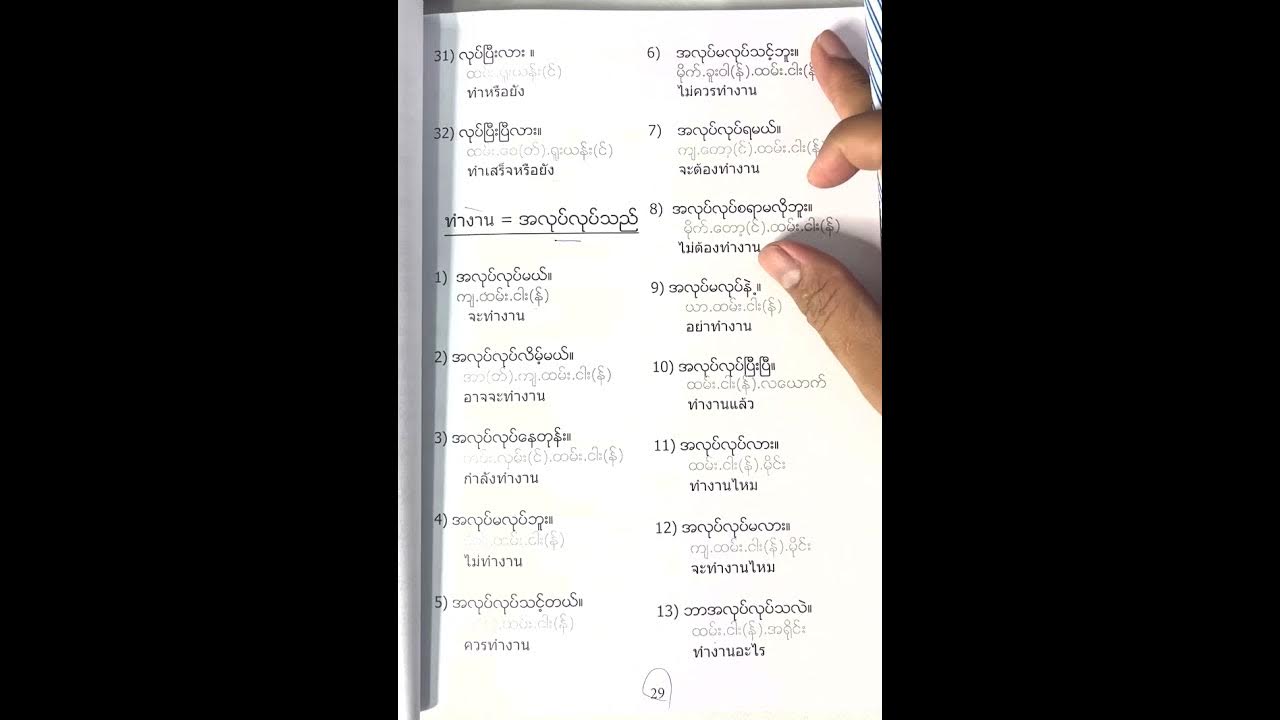 31) လုပ်ပြီးလား ။
ทำหรือยัง
32) လုပ်ပြီးပြီလား။
ทำเสร็จหรือยัง
ทำงาน = အလုပ်လုပ်သည်
1) အလုပ်လုပ်မယ်။
ကျ.ထမ်း.ငါး(န်)
จะทำงาน
2) အလုပ်လုပ်လိမ့်မယ်။
အာ(တ်).ကျ.ထမ်း.ငါး(န်)
อาจจะทำงาน
3) အလုပ်လုပ်နေတုန်း။
လုမ်း(င်).ထမ်း.ငါး(န်)
กำลังทำงาน
4) အလုပ်မလုပ်ဘူး။
ထမ်း.ငါး(န်)
ไม่ทำงาน
5) အလုပ်လုပ်သင့်တယ်။
ထမ်း.ငါး(န်)
ควรทำงาน
6) အလုပ်မလုပ်သင့်ဘူး။
မိုက်.ခူးဝါ(န်).ထမ်း.ငါး(န်
ไม่ควรทำงาน
7) အလုပ်လုပ်ရမယ်။
ကျ.တော့(င်).ထမ်း.ငါး(န်)
จะต้องทำงาน
8) အလုပ်လုပ်စရာမလိုဘူး။
မိုက်.တော့(င်).ထမ်း.ငါး(န်)
ไม่ต้องทำงาน
9) အလုပ်မလုပ်နဲ့။
ယာ.ထမ်း.ငါး(န်)
อย่าทำงาน
10) အလုပ်လုပ်ပြီးပြီ။
ထမ်း.ငါး(န်).လယောက်
ทำงานแล้ว
11) အလုပ်လုပ်လား။
ထမ်း.ငါး(န်).မိုင်း
ทำงานไหม
12) အလုပ်လုပ်မလား။
ကျ.ထမ်း.ငါး(န်).မိုင်း
จะทำงานไหม
13) ဘာအလုပ်လုပ်သလဲ။
ထမ်း.ငါး(န်).အရိုင်း
ทำงานอะไร
29